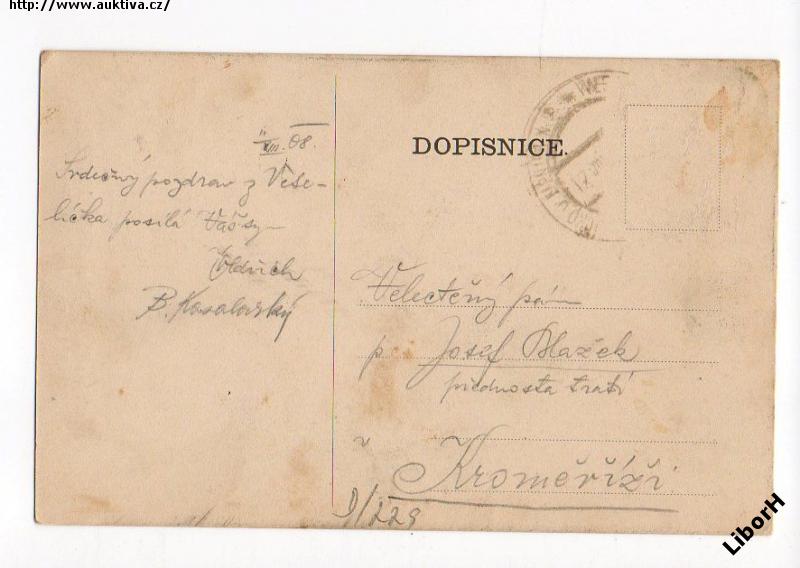 http://www.auktiva.cz/
DOPISNICE.
VIII. 08.
Srdečný pozdrav z Vese-
líčka posílá Váš sy-
Oldřich
B. Kosalovský
Velectěný pán
p. Josef Blažek
přednosta trati
v
Kroměříži.
D/229
LiborH